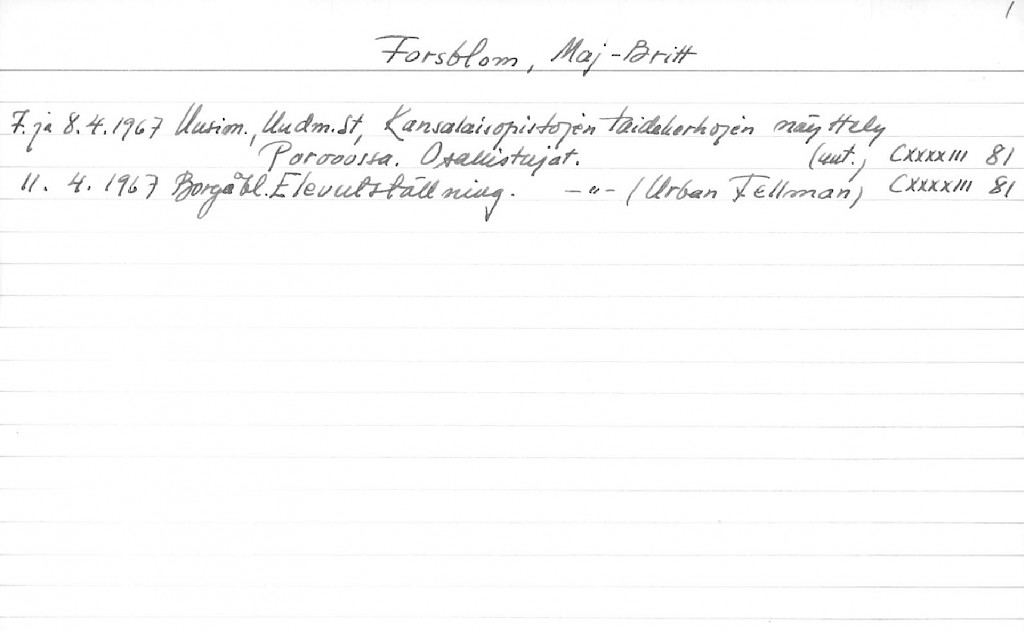 1
Forsblom, Maj-Britt
7. ja 8.4.1967 Uusim., Uudm.St, Kansalaisopistojen taidekerhojen näyttely
Porvoossa. Osallistujat. (uut.) CXXXXIII 81
11. 4. 1967 Borgåbl. Elevutställning. -"- (Urban Fellman) CXXXXIII 81